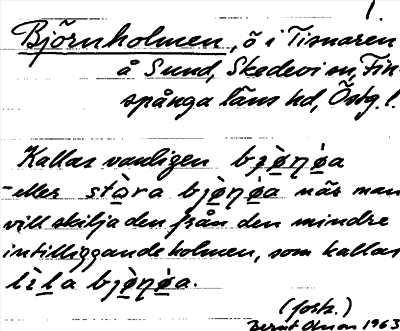 1.
Björnholmen, ö i Tisnaren
å Sund, Skedevi sn, Fin-
spånga läns hd, Östg.l.
Kallas vanligen bjø̀ṇǿa
eller stɔ̀ra bjø̀ṇǿa när man
vill skilja den från den mindre
intilliggande holmen, som kallas
lìḷa bjø̀ṇǿa.
(forts.)
Bernt Olsson 1963